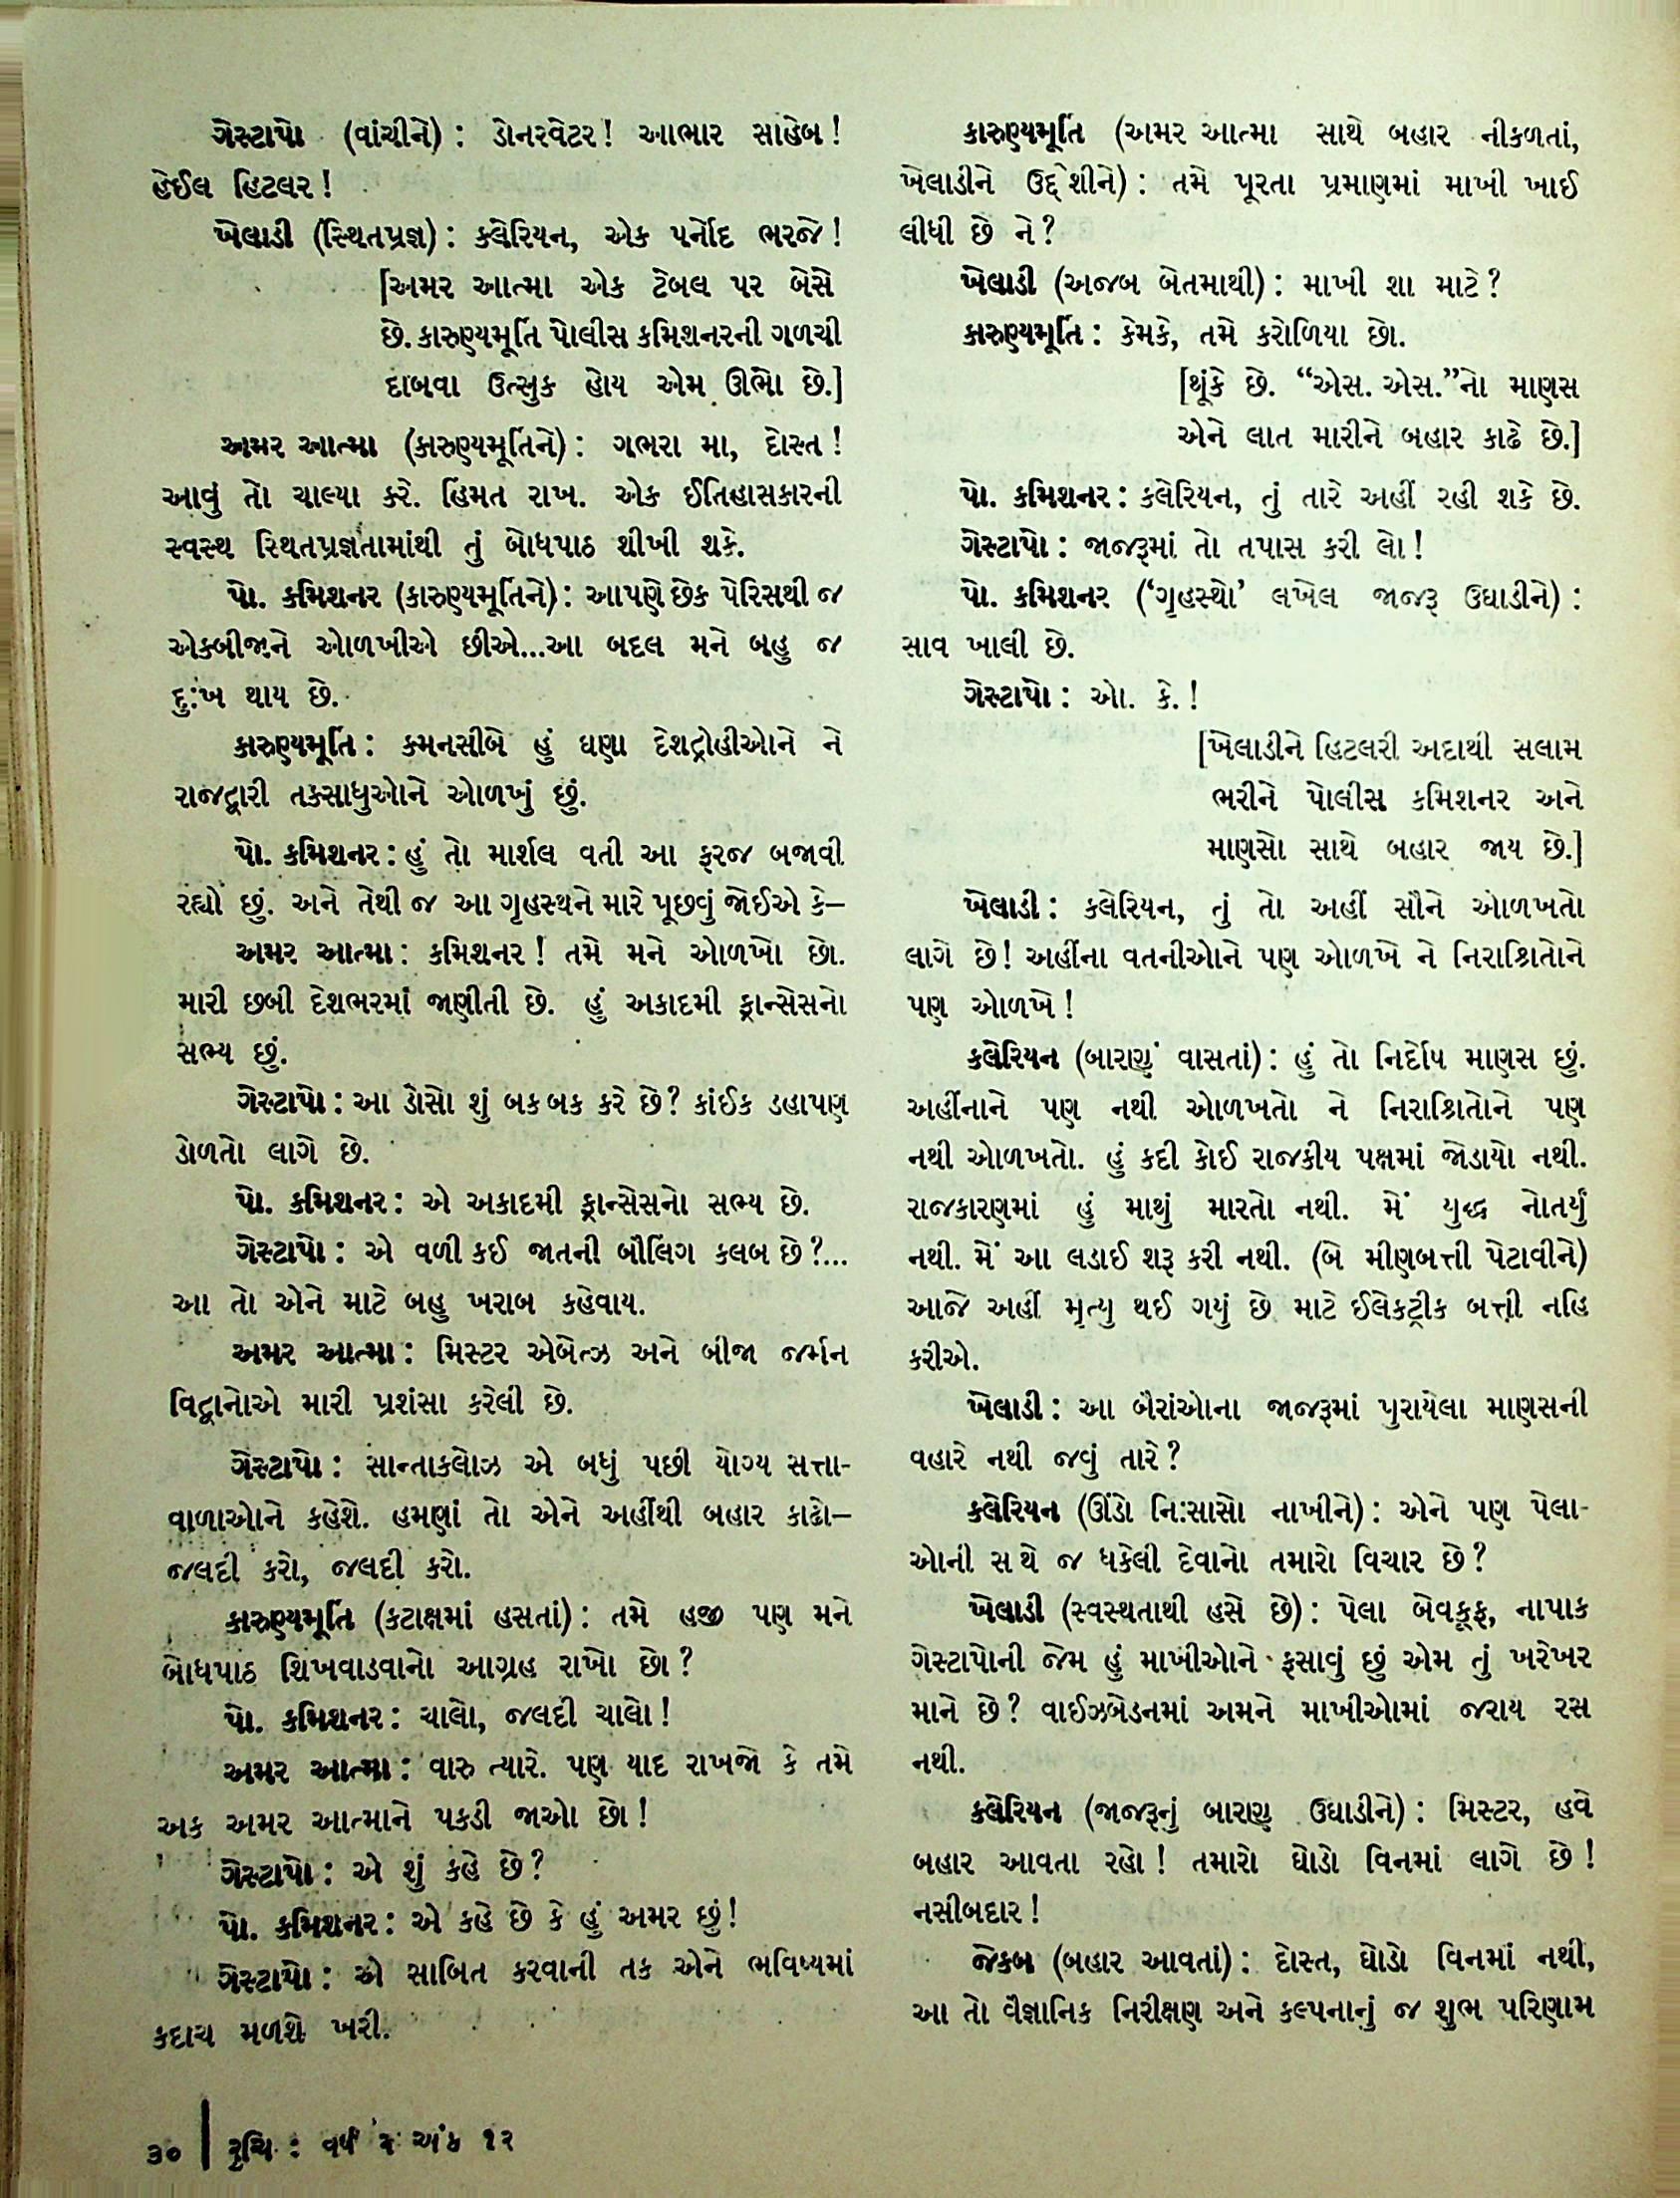 ગેસ્ટાપો (વાંચીને) : ડોનરવેટર! આભાર સાહેબ!
હેઈલ હિટલર!
ખેલાડી (સ્થિતપ્રજ્ઞ) : ક્લેરિયન, એક પર્નોદ ભરજે!
[અમર આત્મા એક ટેબલ પર બેસે
છે. કારુણ્યમૂર્તિ પોલીસ કમિશનરની ગળચી
દાબવા ઉત્સુક હોય એમ ઊભો છે.]
અમર આત્મા (કારુણ્યમૂર્તિને) : ગભરા મા, દોસ્ત!
આવું તો ચાલ્યા કરે. હિંમત રાખ. એક ઈતિહાસકારની
સ્વસ્થ સ્થિતપ્રજ્ઞતામાંથી તું બોધપાઠ શીખી શકે.
પો. કમિશનર (કારુણ્યમૂર્તિને) : આપણે છેક પેરિસથી જ
એકબીજાને ઓળખીએ છીએ...આ બદલ મને બહુ જ
દુ:ખ થાય છે.
કારુણ્યમૂર્તિ : કમનસીબે હું ઘણા દેશદ્રોહીઓને ને
રાજદ્વારી તકસાધુઓને ઓળખું છું.
પો. કમિશનર : હું તો માર્શલ વતી આ ફરજ બજાવી
રહ્યો છું. અને તેથી જ આ ગૃહસ્થને મારે પૂછવું જોઈએ કે—
અમર આત્મા : કમિશનર! તમે મને ઓળખો છો.
મારી છબી દેશભરમાં જાણીતી છે. હું અકાદમી ફ્રાન્સેસનો
સભ્ય છું.
ગેસ્ટાપો : આ ડોસો શું બકબક કરે છે? કાંઈક ડહાપણ
ડોળતો લાગે છે.
પો. કમિશનર : એ અકાદમી ફ્રાન્સેસનો સભ્ય છે.
ગેસ્ટાપો : એ વળી કઈ જાતની બૌલિંગ ક્લબ છે?...
આ તો એને માટે બહુ ખરાબ કહેવાય.
અમર આત્મા : મિસ્ટર એબેત્ઝ અને બીજા જર્મન
વિદ્વાનોએ મારી પ્રશંસા કરેલી છે.
ગેસ્ટાપો : સાન્તાક્લોઝ એ બધું પછી યોગ્ય સત્તા-
વાળાઓને કહેશે. હમણાં તો એને અહીંથી બહાર કાઢો—
જલદી કરો, જલદી કરો.
કારુણ્યમૂર્તિ (કટાક્ષમાં હસતાં) : તમે હજી પણ મને
બોધપાઠ શિખવાડવાનો આગ્રહ રાખો છો?
પો. કમિશનર : ચાલો, જલદી ચાલો!
અમર આત્મા : વારુ ત્યારે. પણ યાદ રાખજો કે તમે
અક અમર આત્માને પકડી જાઓ છો!
ગેસ્ટાપો : એ શું કહે છે?
પો. કમિશનર : એ કહે છે કે હું અમર છું!
ગેસ્ટાપો : એ સાબિત કરવાની તક એને ભવિષ્યમાં
કદાચ મળશે ખરી.
કારુણ્યમૂર્તિ (અમર આત્મા સાથે બહાર નીકળતાં,
ખેલાડીને ઉદ્દેશીને) : તમે પૂરતા પ્રમાણમાં માખી ખાઈ
લીધી છે ને?
ખેલાડી (અજબ બેતમાથી) : માખી શા માટે?
કારુણ્યમૂર્તિ : કેમકે, તમે કરોળિયા છો.
[થૂંકે છે. “એસ. એસ.”નો માણસ
એને લાત મારીને બહાર કાઢે છે.]
પો. કમિશનર : ક્લેરિયન, તું તારે અહીં રહી શકે છે.
ગેસ્ટાપો : જાજરૂમાં તો તપાસ કરી લો!
પો. કમિશનર (‘ગૃહસ્થો’ લખેલ જાજરૂ ઉઘાડીને) :
સાવ ખાલી છે.
ગેસ્ટાપો : ઓ. કે.!
[ખેલાડીને હિટલરી અદાથી સલામ
ભરીને પોલીસ કમિશનર અને
માણસો સાથે બહાર જાય છે.]
ખેલાડી : ક્લેરિયન, તું તો અહીં સૌને ઓળખતો
લાગે છે! અહીંના વતનીઓને પણ ઓળખે ને નિરાશ્રિતોને
પણ ઓળખે!
ક્લેરિયન (બારણું વાસતાં) : હું તો નિર્દોષ માણસ છું.
અહીંનાને પણ નથી ઓળખતો ને નિરાશ્રિતોને પણ
નથી ઓળખતો. હું કદી કોઈ રાજકીય પક્ષમાં જોડાયો નથી.
રાજકારણમાં હું માથું મારતો નથી. મેં યુદ્ધ નોતર્યું
નથી. મેં આ લડાઈ શરૂ કરી નથી. (બે મીણબત્તી પેટાવીને)
આજે અહીં મૃત્યુ થઈ ગયું છે માટે ઈલેક્ટ્રીક બત્તી નહિ
કરીએ.
ખેલાડી : આ બૈરાંઓના જાજરૂમાં પુરાયેલા માણસની
વહારે નથી જવું તારે?
ક્લેરિયન (ઊંડો નિ:સાસો નાખીને) : એને પણ પેલા-
ઓની સથે જ ધકેલી દેવાનો તમારો વિચાર છે?
ખેલાડી (સ્વસ્થતાથી હસે છે) : પેલા બેવકૂફ, નાપાક
ગેસ્ટાપોની જેમ હું માખીઓને ફસાવું છું એમ તું ખરેખર
માને છે? વાઈઝબેડનમાં અમને માખીઓમાં જરાય રસ
નથી.
ક્લેરિયન (જાજરૂનું બારણુ ઉઘાડીને) : મિસ્ટર, હવે
બહાર આવતા રહો! તમારો ઘોડો વિનમાં લાગે છે!
નસીબદાર!
જેકબ (બહાર આવતાં) : દોસ્ત, ઘોડો વિનમાં નથી,
આ તો વૈજ્ઞાનિક નિરીક્ષણ અને કલ્પનાનું જ શુભ પરિણામ
૩૦ | રૃચિ : વર્ષ અંક ૧૨